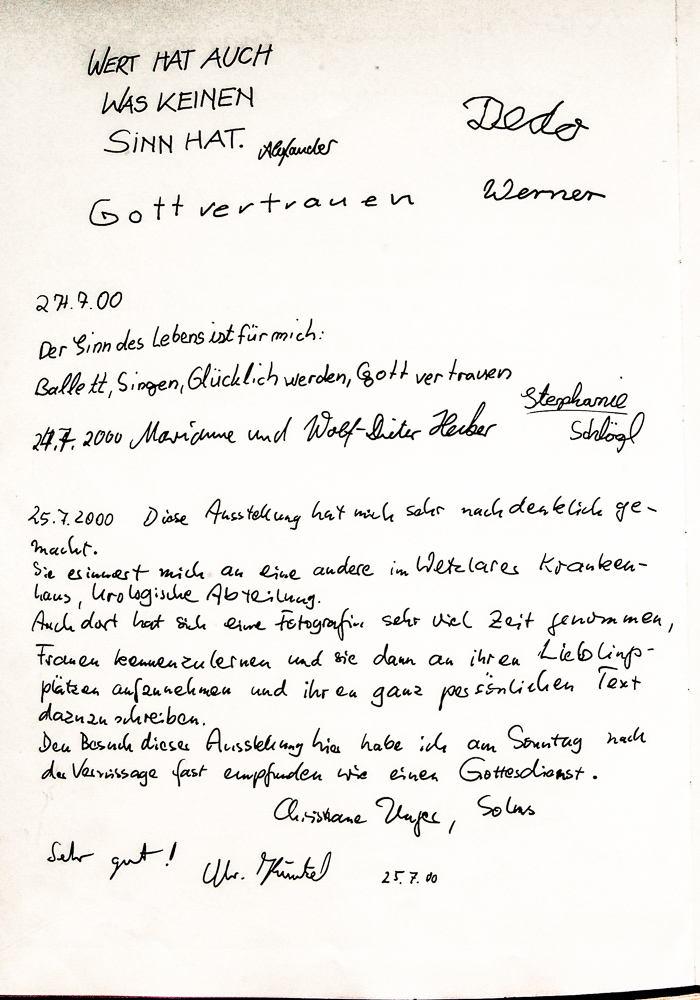 WERT HAT AUCH
WAS KEINEN
SINN HAT. Alexander
Dedo
Gottvertrauen
Werner
.7.00
Der Sinn des Lebens ist für mich:
Ballett, Singen, Glücklich werden, Gott vertrauen
Stephanie
Schlögl
.7. 2000 Marianne und Wolf-Dieter
25.7.2000 Diese Ausstellung hat mich sehr nachdenklich ge-
macht.
Sie erinnert mich an eine andere im Wetzlarer Kranken-
haus, Urologische Abteilung.
Auch dort hat sich eine Fotografin sehr viel Zeit genommen,
Frauen kennenzulernen und sie dann an ihren Lieblings-
plätzen aufzunehmen und ihren ganz persönlichen Text
dazuzuschreiben.
Den Besuch dieser Ausstellung hier habe ich am Sonntag nach
der Vernissage fast empfunden wie einen Gottesdienst.
Christiane Unger, Solms
Sehr gut!
25.7.00